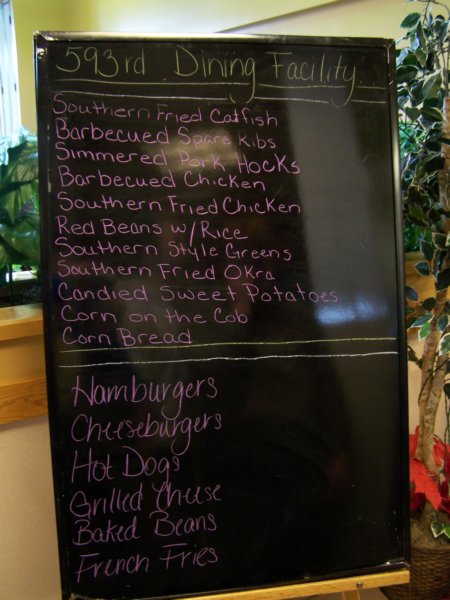 593rd Dining Facility
Southern Fried Catfish
Barbecued Spare Ribs
Simmered Pork Hocks
Barbecued Chicken
Southern Fried Chicken
Red Beans w/Rice
Southern Style Greens
Southern Fried Okra
Candied Sweet Potatoes
Corn on the Cob
Corn Bread
Hamburgers
Cheeseburgers
Hot Dogs
Grilled Cheese
Baked Beans
French Fries